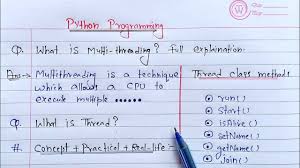 Python Programming
Q. What is Multi-threading? Full explanation.
Ans→ Multithreading is a technique
which allows a CPU to
execute multiple ......
Thread class methods
run()
start()
isAlive()
getName()
setName()
Join()
Q. What is Thread?
# Concept + Practical + Real-life :-